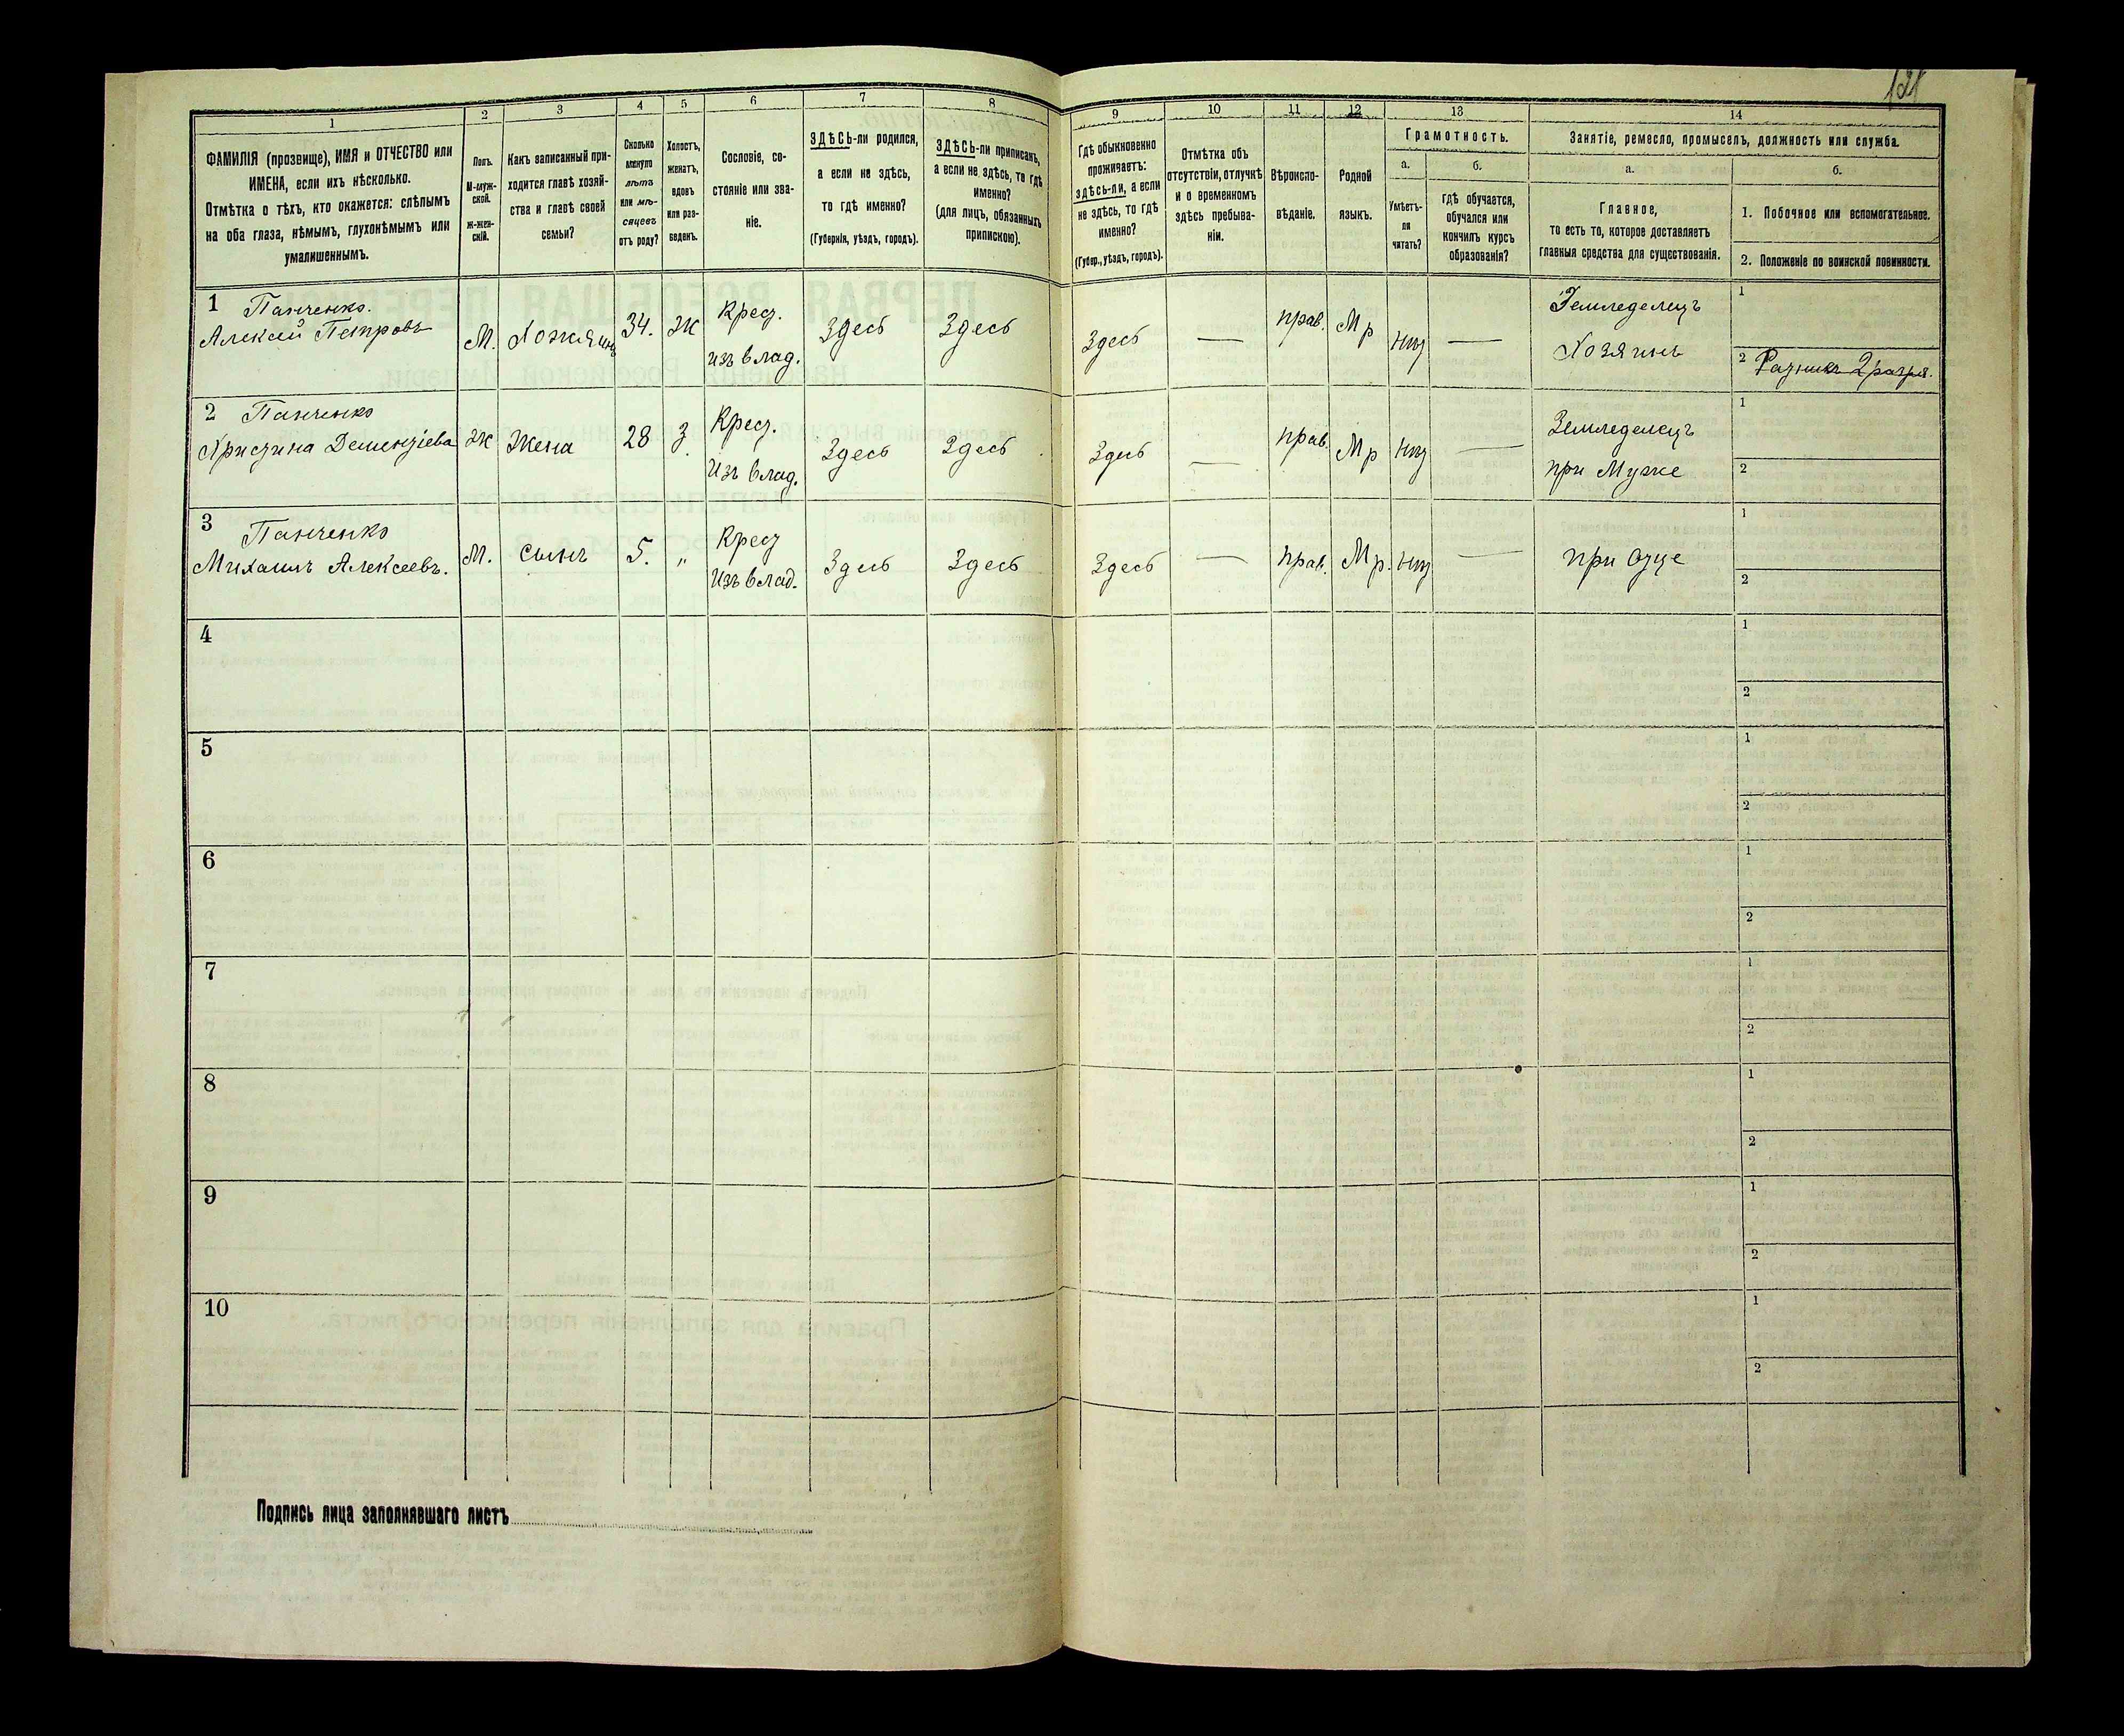 121
1
2
3
4
5
6
7
8
9
10
11
12
13
14
ФАМИЛІЯ (прозвище), ИМЯ и ОТЧЕСТВО или
ИМЕНА, если ихъ нѣсколько.
Отмѣтка о тѣхъ, кто окажется: слѣпымъ
на оба глаза, нѣмымъ, глухонѣмымъ или
умалишеннымъ.
Полъ.
М-муж-
ской.
ж-жен-
скій.
Какъ записанный при-
ходится главѣ хозяй-
ства и главѣ своей
семьи?
Сколько
минуло
лѣтъ
или мѣ-
сяцевъ
отъ роду?
Холостъ,
женатъ,
вдовъ
или раз-
веденъ.
Сословіе, со-
стояніе или зва-
ніе.
ЗДѢСЬ-ли родился,
а если не здѣсь,
то гдѣ именно?
(Губернія, уѣздъ, городъ).
ЗДѢСЬ-ли приписанъ,
а если не здѣсь, то гдѣ
именно?
(для лицъ, обязанныхъ
припискою).
Гдѣ обыкновенно
проживаетъ:
здѣсь-ли, а если
не здѣсь, то гдѣ
именно?
(Губер., уѣздъ, городъ).
Отмѣтка объ
отсутствіи, отлучкѣ
и о временномъ
здѣсь пребыва-
ніи.
Вѣроиспо-
вѣданіе.
Родной
языкъ.
Грамотность.
а.
б.
Умѣетъ-
ли
читать?
гдѣ обучается,
обучался или
кончилъ курсъ
образованія?
Занятіе, ремесло, промыселъ, должность или служба.
а.
б.
Главное,
то есть то, которое доставляетъ
главныя средства для существованія.
1. Побочное или вспомогательное.
2. Положеніе по воинской повинности.
1 Панченко.
Алексей Петровъ
М.
Хозяинъ
34.
Ж
Крест.
изъ влад.
Здесь
Здесь
Здесь
—
прав.
Мр
нѣт
—
Земледелецъ
Хозяинъ
1
2 Ратникъ 2 разря.
2 Панченко
Христина Дементіева
Ж
Жена
28
З.
Крест.
Изъ влад.
Здесь
Здесь
Здесь
—
прав.
Мр
нѣт
—
Земледелецъ
при Муже
1
2
3 Панченко
Михаилъ Алексеевъ.
М.
сынъ
5.
„
Крест
Изъ влад.
Здесь
Здесь
Здесь
—
прав.
Мр.
нѣт
—
при Отце
1
2
4
1
2
5
1
2
6
1
2
7
1
2
8
1
2
9
1
2
10
1
2
Подпись лица заполнявшаго листъ